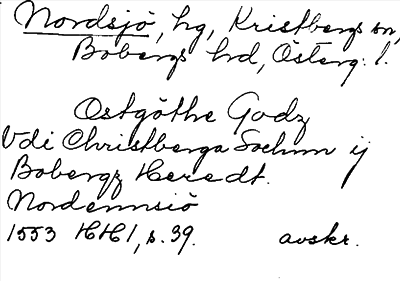 Nordsjö, hg, Kristbergs sn,
Bobergs hrd, Österg. l.
Ostgöthe Godz
Vdi Christberga Sochnn ij
Bobergz Heredt.
Nordennsiö
1553 HH1, s. 39. avskr.